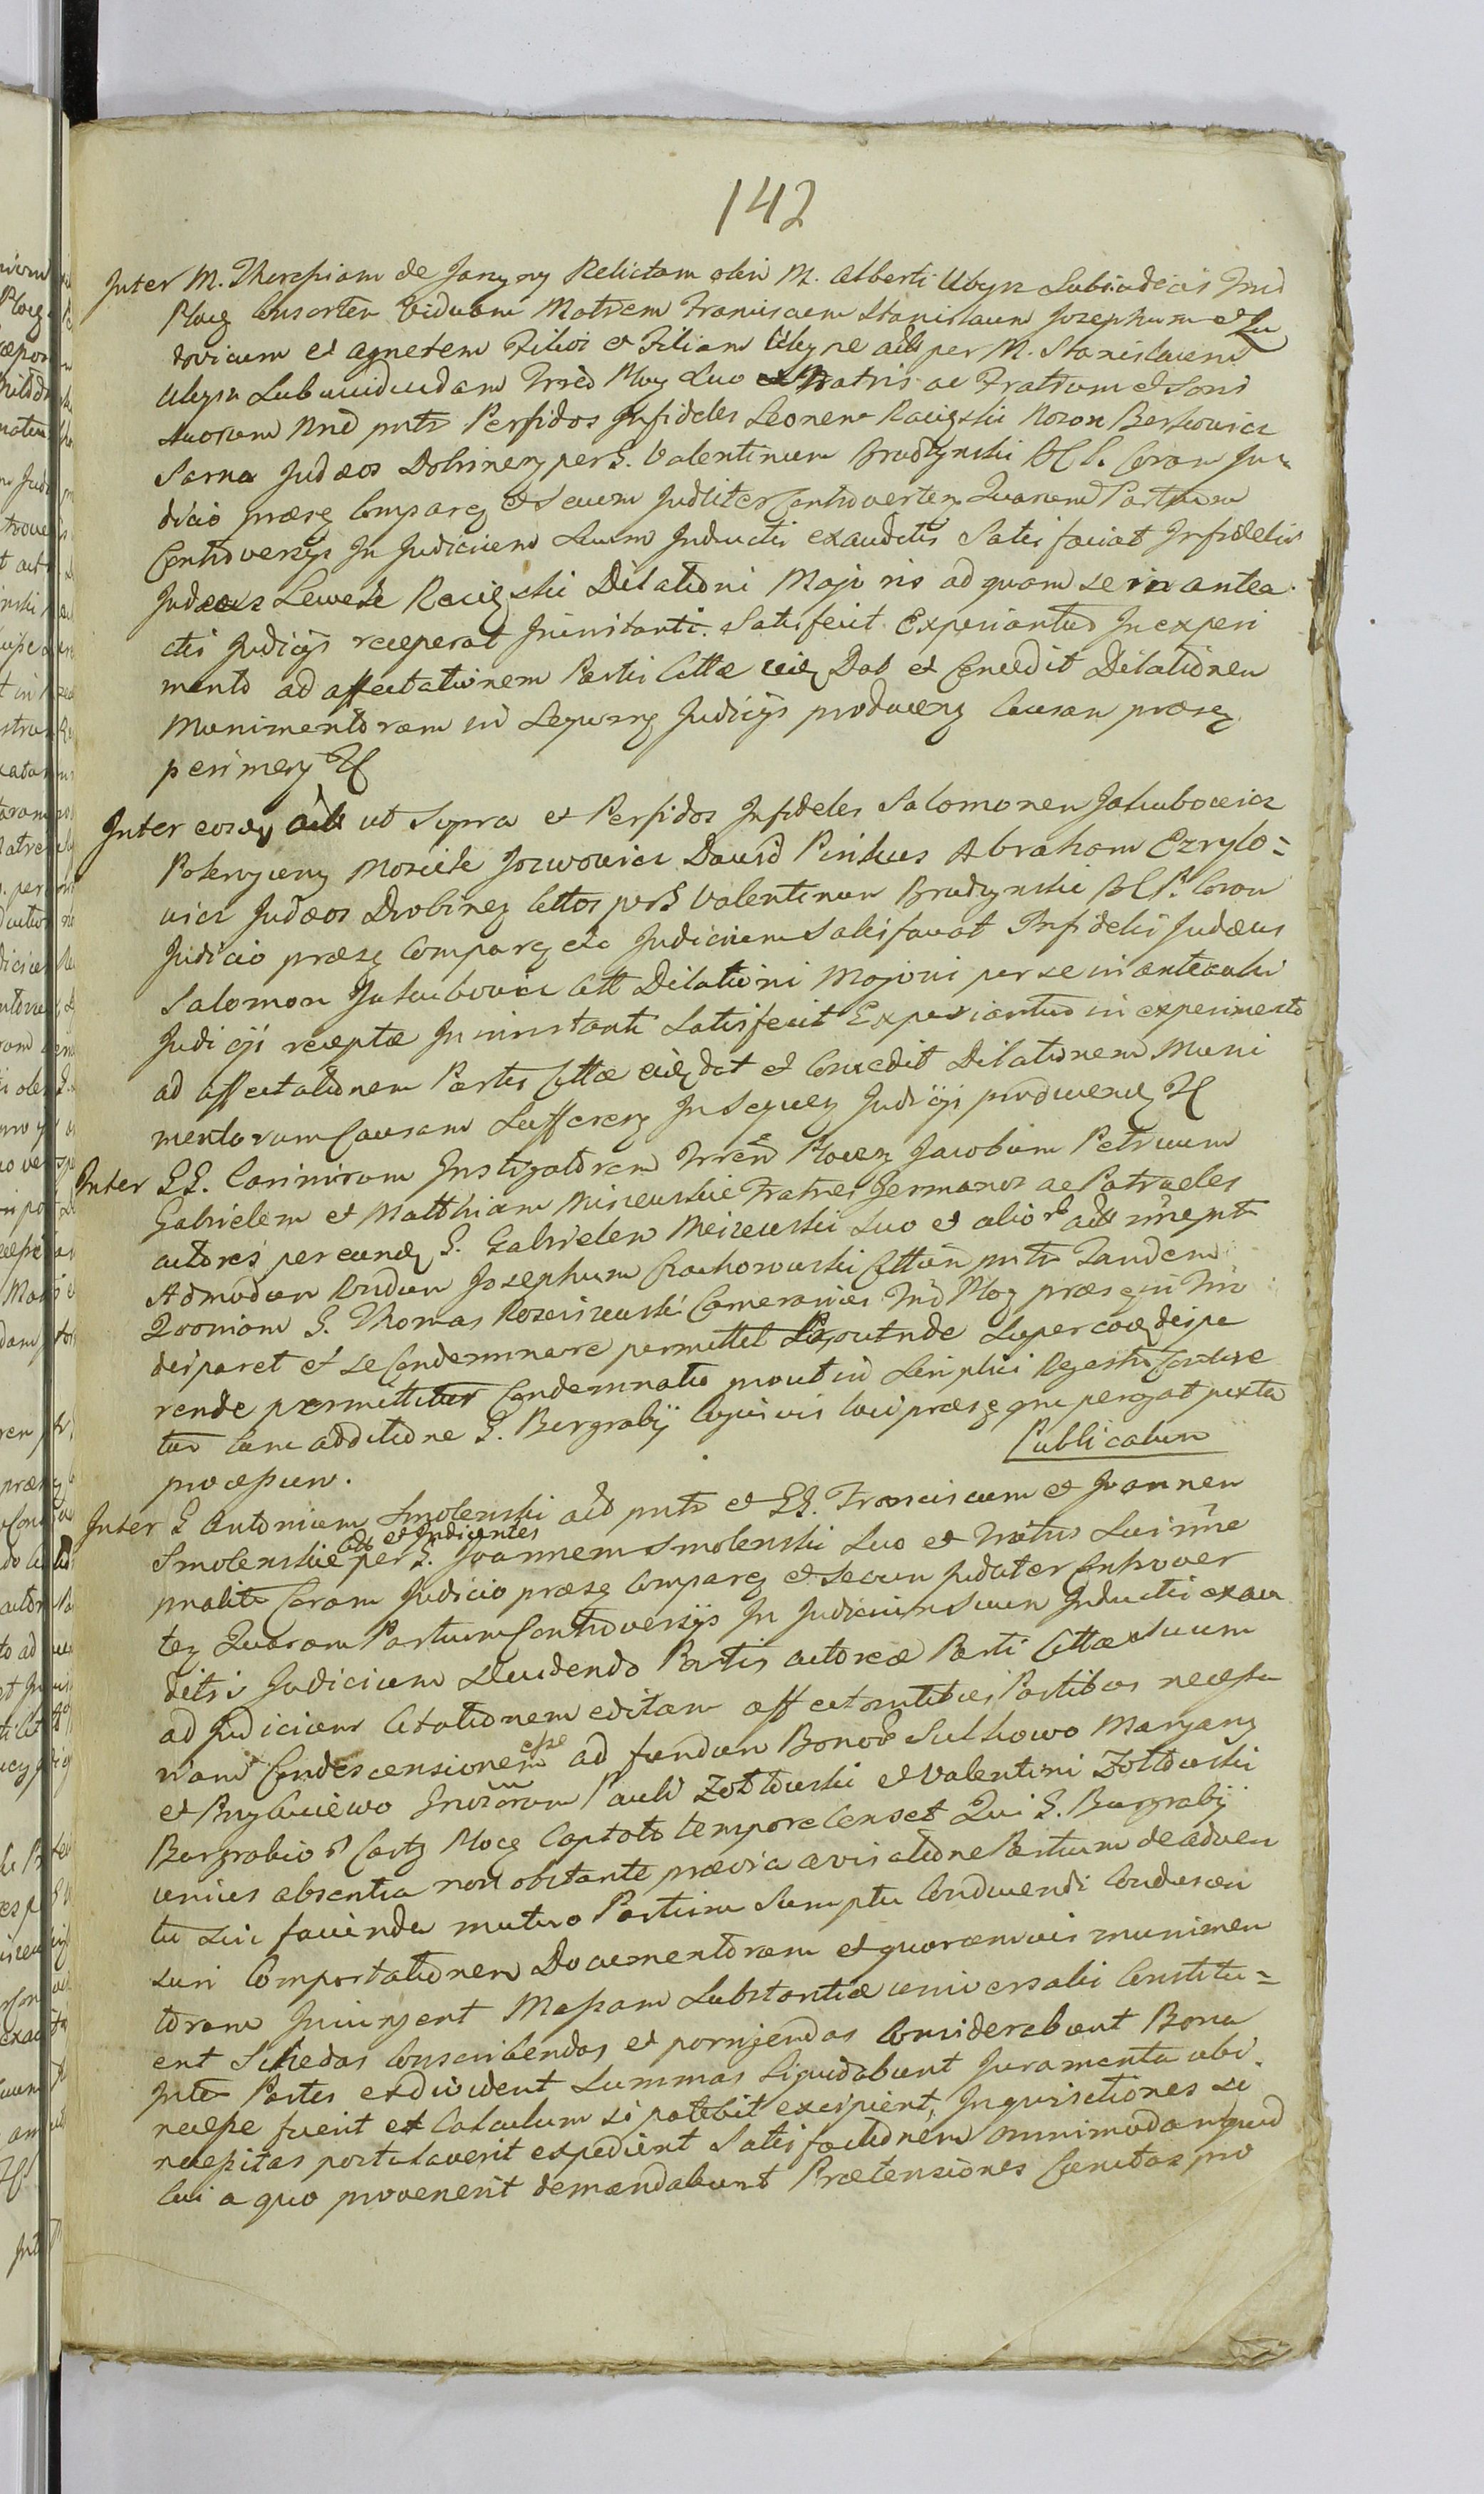 142
Inter M. Theresiam de Relictam olim M. Alberti Ubysz Subiudicis Trrd
Ploc Consortem Viduam Matrem Franciscum Stanislaum Josephum et Lu
dovicum et Agnetem Filios et Filiam Ubysze per M. Stanislaum
Ubysz Subiudicidam Trred Ploc Suo et Matris ac Fratrum et Soris
Suorum Nnd pnts Perfidos Infideles Leonem Raciązki Berkowicz
Sarna Judæos Dobrinen per G. Valentinum Brudzynski Coram Ju
dicio præsen Comparen et Secum Judliter Controverten Quarum Partium
Controversys In Judicium Suum Inductis exauditis Satis faciat Infidelis
Judæus Lewek Raciązki Dilationi Majoris ad quam se in antea
ctis Judicys receperat Ininstanti. Satisfecit Experiantur In experi
mento ad affectationem Partis Cittæ eidem Dat et Concedit Dilationem
Munimentorum in Sequen Judicys producen Causam præsen
perimen
Inter eosdem ut Supra et Perfidos Infideles Salomonem Jakubowicz
Moziek Jozwowicz Dawid Pinkus Abraham Ezrylo=
wicz Judæos Drobinen Cittos per G Valentinum Brudzynski Coram
Judicio præsen Comparen etc Judicium Satisfaciat Infidelis Judæus
Salomon Jakubowicz Citt Dilationi Majori per se in anteactis
Judicys receptæ Ininstanti Satisfecit Experiantur in experimento
ad affectationem Partis Cittæ eidem dat et Concedit Dilationem Muni
mentorum Causam Sufferen In Sequen Judicys producend
Inter GG. Casimirum Instigatorem Trrend Plocen Jacobum Petrum
Gabrielem et Matthiam Miszewskie Fratres Germanos ac Patrueles
actores per eund G. Gabrielem Miszewski Suo et alior
Admodum Rndum Josephum Czachorowski Cittum pnts Tandem
Quoniam G. Thomas Camerarius Trrd Ploc præsen in Trro
desparet et se Condemnare permittet Proutnde Super eod despa
rende permittitur Condemnatio prout in Simplici Regestro Continere
tur Cum additione G. Burgrabij Cujusvis loci præsen qui pergat juxta
processum. Publicatum
Inter G Antonium Smolenski act pnts et GG. Franciscum et Joannem
Smolenskie act et Indicantes per G. Joannem Smolenski Suo et Fratris Sui nne
pnalite Coram Judicio præsen Comparen et Secum Judliter Controver
ten Quarum Partium Controversijs In Judicium Suum Inductis exau
ditis Judicium Studendo Partis actoreæ Parti Cittæ Suum
ad Judicium Citationem editam affectantibus Partibus necessa
riam Condescensionem esse ad fundum Bonor Sulkowo Maryany
et Bryluciewo Gnosorum Pauli Zołtowski et Valentini Zołtowski
Burgrabior Castr Ploc Captato tempore Censet Qui G. Burgrabij
unius absentia non obstante prævia avisatione Partium de adven
tu Sui facienda mutuo Partium Sumptu Conducendi Condescen
suri Comportationem Documentorum et quorumvis munimen
torum Iniungent Massam Substantiæ universalis Constitu=
ent Schedas Conscribendas et porrigendas Considerabunt Bona
Inter Partes exdivident Summas Liquidabunt Juramenta ubi
necesse fuerit et Calculum si patebit excipient, Inquisitiones si
necessitas postulaverit expedient Satisfactionem omnimodam quid
Cui a quo provenerit demandabunt Prætensiones Cunctas pro